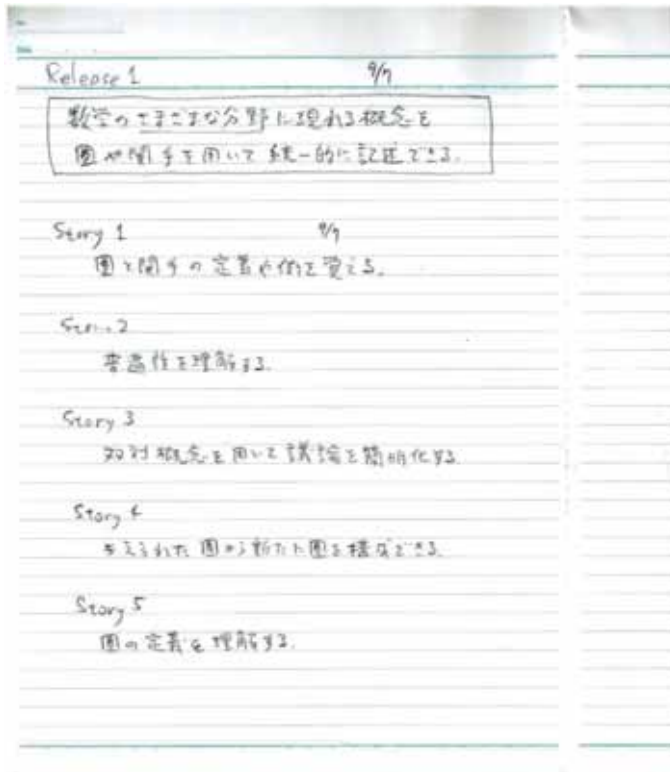 Release 1 9/7
数学のさまざまな分野に現れる概念を
圏や関手を用いて統一的に記述できる.
Story 1 9/7
圏と関手の定義や例を覚える.
Story 2
普遍性を理解する.
Story 3
双対概念を用いて議論を簡明化する
Story 4
与えられた圏から新たに圏を構成できる.
Story 5
圏の定義を理解する.